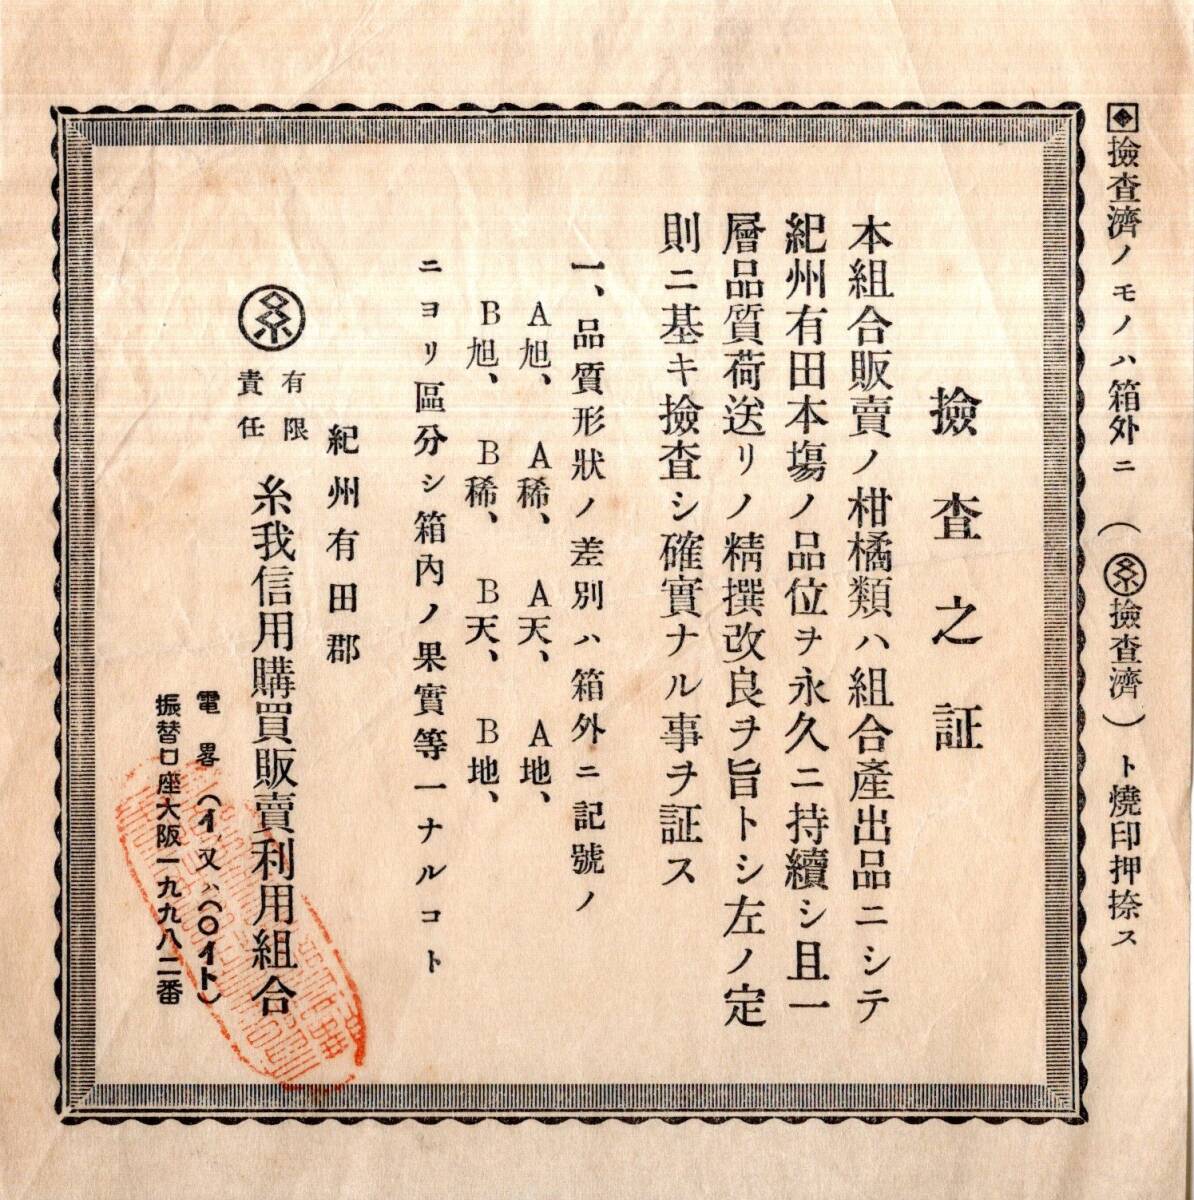 撿査濟ノモノハ箱外ニ（糸撿査濟）ト燒印押捺ス
撿査之証
本組合販賣ノ柑橘類ハ組合產出品ニシテ
紀州有田本塲ノ品位ヲ永久ニ持續シ且一
層品質荷送リノ精撰改良ヲ旨トシ左ノ定
則ニ基キ撿査シ確實ナル事ヲ証ス
一、品質形狀ノ差別ハ箱外ニ記號ノ
A旭、A稀、A天、A地、
B旭、B稀、B天、B地、
ニヨリ區分シ箱內ノ果實等一ナルコト
紀州有田郡
有限
責任
糸我信用購買販賣利用組合
電畧（イ、又ハ（〇イト）
振替口座大阪一九九八二番